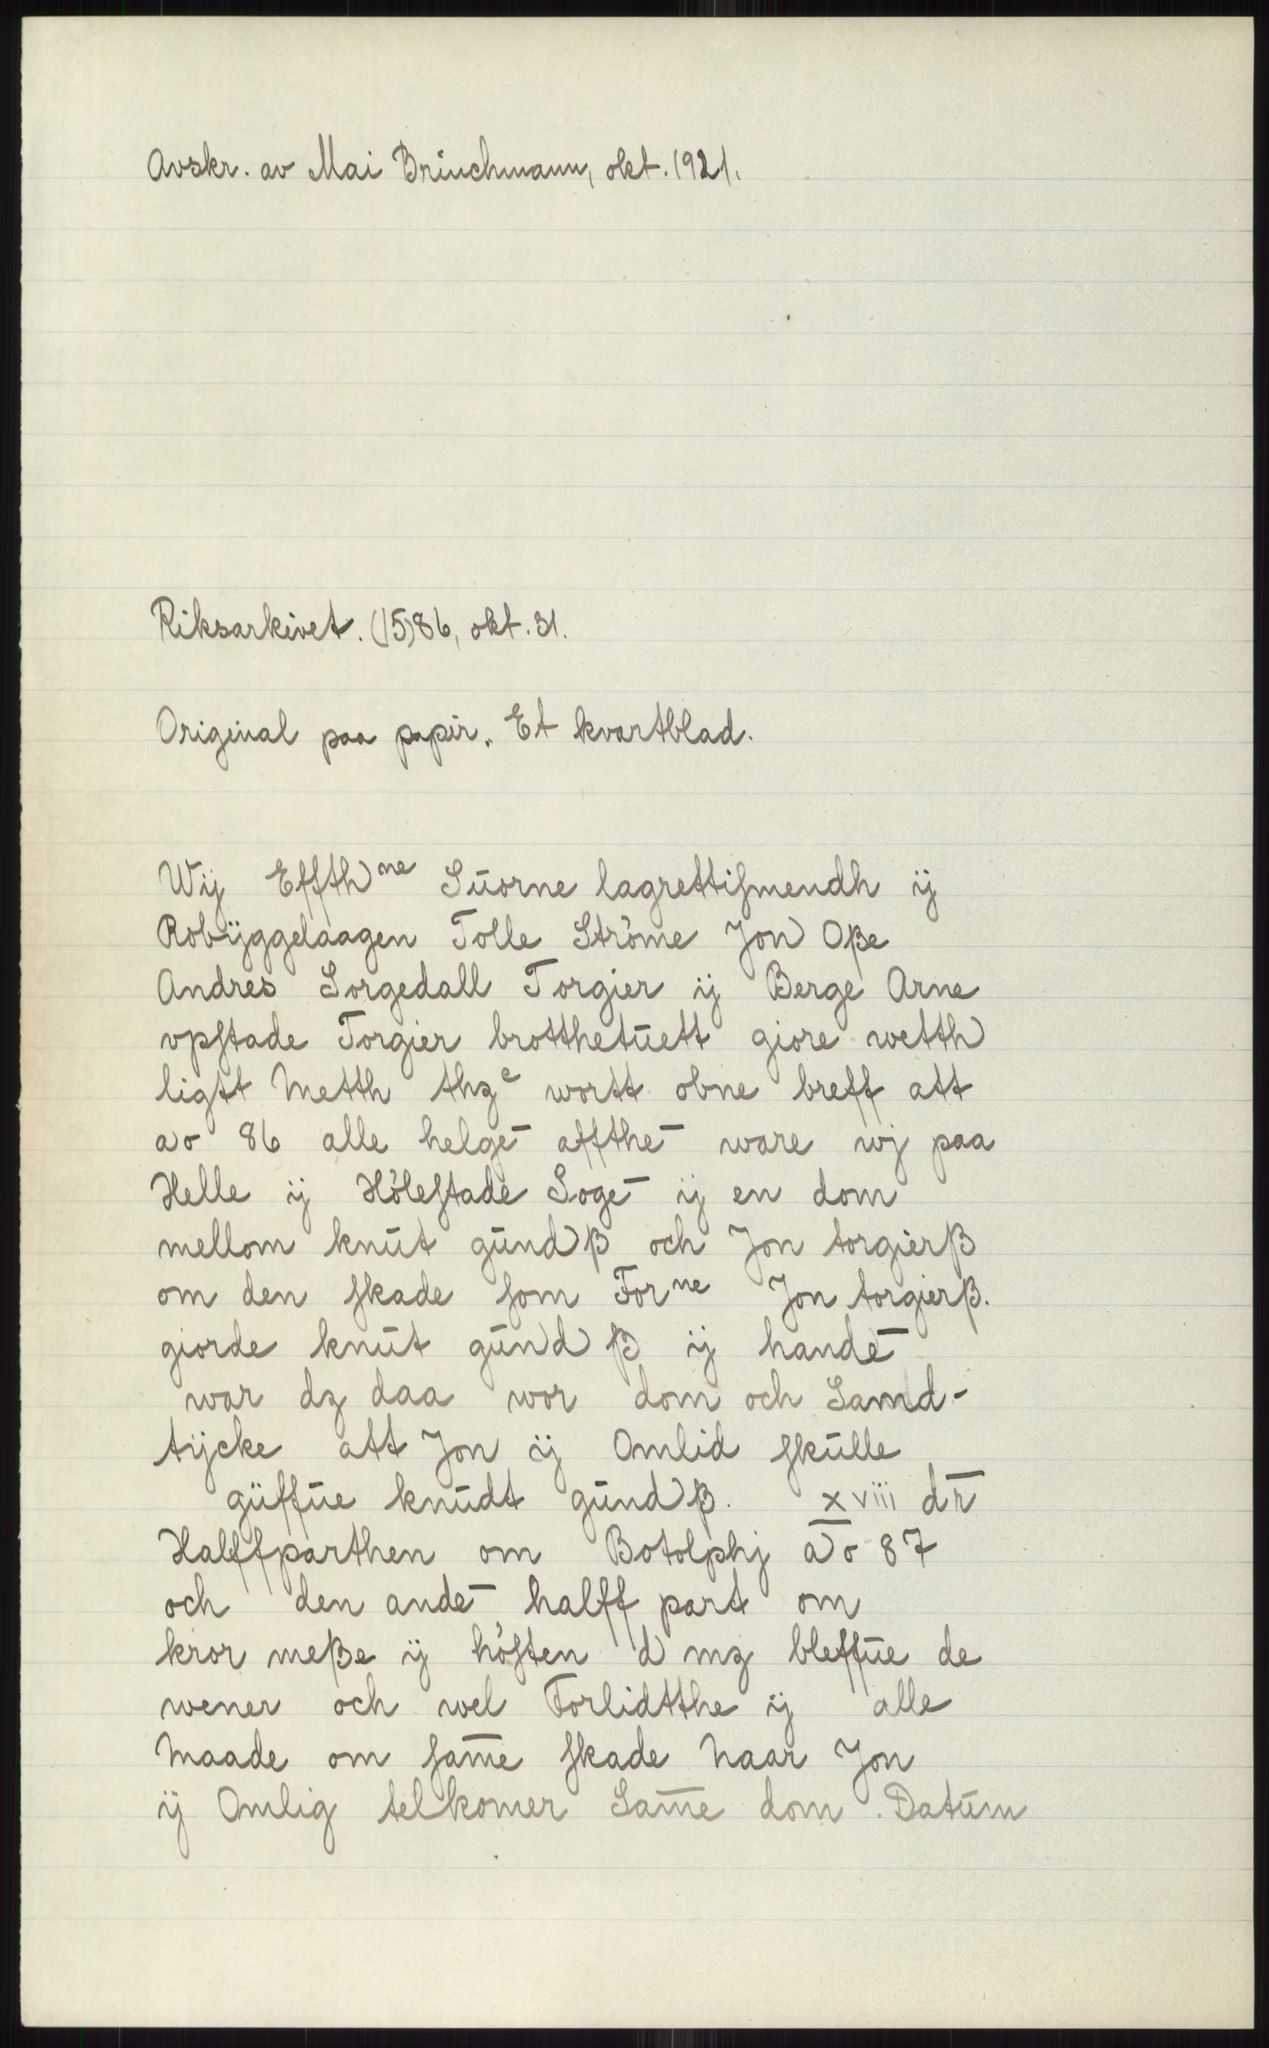 Avskr. av Mai Brinchmann, okt. 1921.
Riksarkivet. (15)86, okt. 31.
Original paa papir. Et kvartblad.
Wij Effthne Suorne lagrettiſmendh ij
Robÿggelaagen Tolle Strőme Jon Oße
Andres Sorgedall Torgier ij Berge Arne
vpſtade Torgier brotthetūett giore wetth
ligtt Metth thze wortt obne breff att
ao 86 alle helgē affthē ware wj paa
Helle ij Hőleſtade Sogē ij en dom
mellom knūt gūndß och Jon torgierß
om den ſkade ſom Forne Jon torgierß.
giorde knūt gūndß ij handē
war dz daa wor dom och Samd-
tÿcke att Jon ij Omlid ſkūlle
gūffūe knūdt gūndß. xviii dr̄
Halffparthen om Botolphj āo 87
och den andē halff part om
kror meße ij hőſten d mz bleffūe de
wener och wel Forlidtthe ij alle
Maade om ſam̄e ſkade Naar Jon
ij Omlig telkomer Sam̄e dom. Datūm